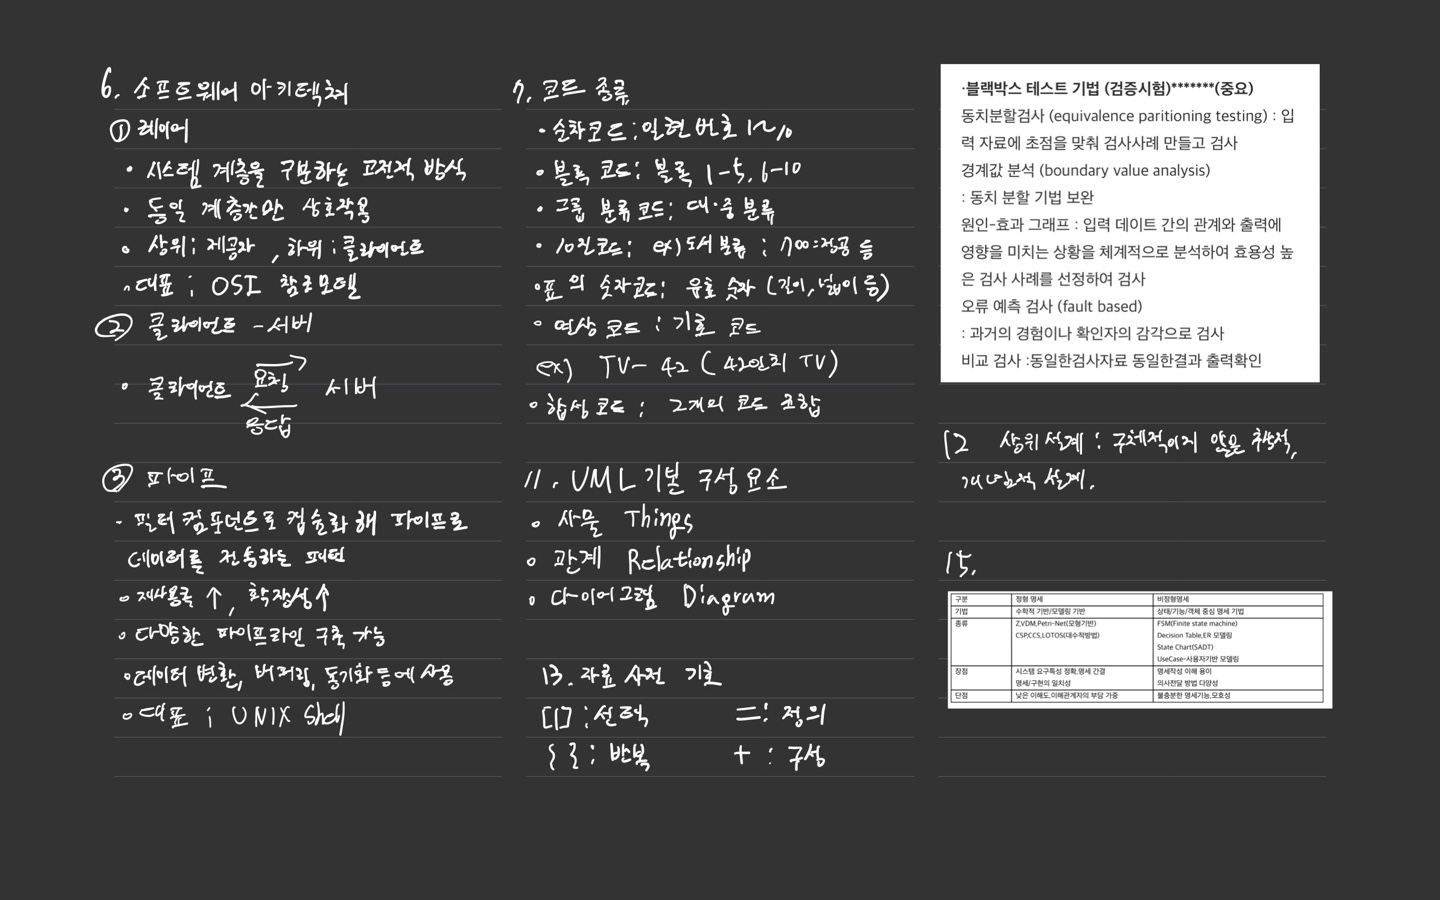 6. 소프트웨어 아키텍쳐
① 레이어
• 시스템 계층을 구분하는 고전적 방식
• 동일 계층간만 상호작용
• 상위 : 제공자 , 하위 : 클라이언트
• 대표 : OSI 참조모델
② 클라이언트 - 서버
• 클라이언트 요청 서버
응답
③ 파이프
- 필터 컴포넌트로 캡슐화 해 파이프로
데이터를 전송하는 패턴
• 재사용성 ↑ , 확장성↑
• 다양한 파이프라인 구축 가능
• 데이터 변환, 버퍼링, 동기화 등에 사용
• 대표 : UNIX Shell
7. 코드 종류
• 순차코드 : 일련 번호 1~10
• 블록 코드 : 블록 1-5, 6-10
• 그룹 분류 코드 : 대·중 분류
• 10진코드 : ex) 도서 분류 : 700=전공 등
• 표의 숫자코드 : 유효 숫자 (길이, 넓이 등)
• 연상 코드 : 기호 코드
ex) TV- 42 ( 42인치 TV)
• 합성 코드 : 2개의 코드 조합
11. UML 기본 구성 요소
• 사물 Things
• 관계 Relationship
• 다이어그램 Diagram
13. 자료 사전 기호
[|] : 선택 = : 정의
{ } : 반복 + : 구성
·블랙박스 테스트 기법 (검증시험)*******(중요)
동치분할검사 (equivalence paritioning testing) : 입
력 자료에 초점을 맞춰 검사사례 만들고 검사
경계값 분석 (boundary value analysis)
: 동치 분할 기법 보완
원인-효과 그래프 : 입력 데이트 간의 관계와 출력에
영향을 미치는 상황을 체계적으로 분석하여 효용성 높
은 검사 사례를 선정하여 검사
오류 예측 검사 (fault based)
: 과거의 경험이나 확인자의 감각으로 검사
비교 검사 :동일한검사자료 동일한결과 출력확인
12 상위 설계 : 구체적이지 않은 추상적,
개념적 설계.
15.
구분 정형 명세 비정형명세
기법 수학적 기반/모델링 기반 상태/기능/객체 중심 명세 기법
종류 Z,VDM,Petri-Net(모형기반) FSM(Finite state machine)
CSP,CCS,LOTOS(대수적방법) Decision Table,ER 모델링
State Chart(SADT)
UseCase-사용자기반 모델링
장점 시스템 요구특성 정확,명세 간결 명세작성 이해 용이
명세/구현의 일치성 의사전달 방법 다양성
단점 낮은 이해도,이해관계자의 부담 가중 불충분한 명세기능,모호성